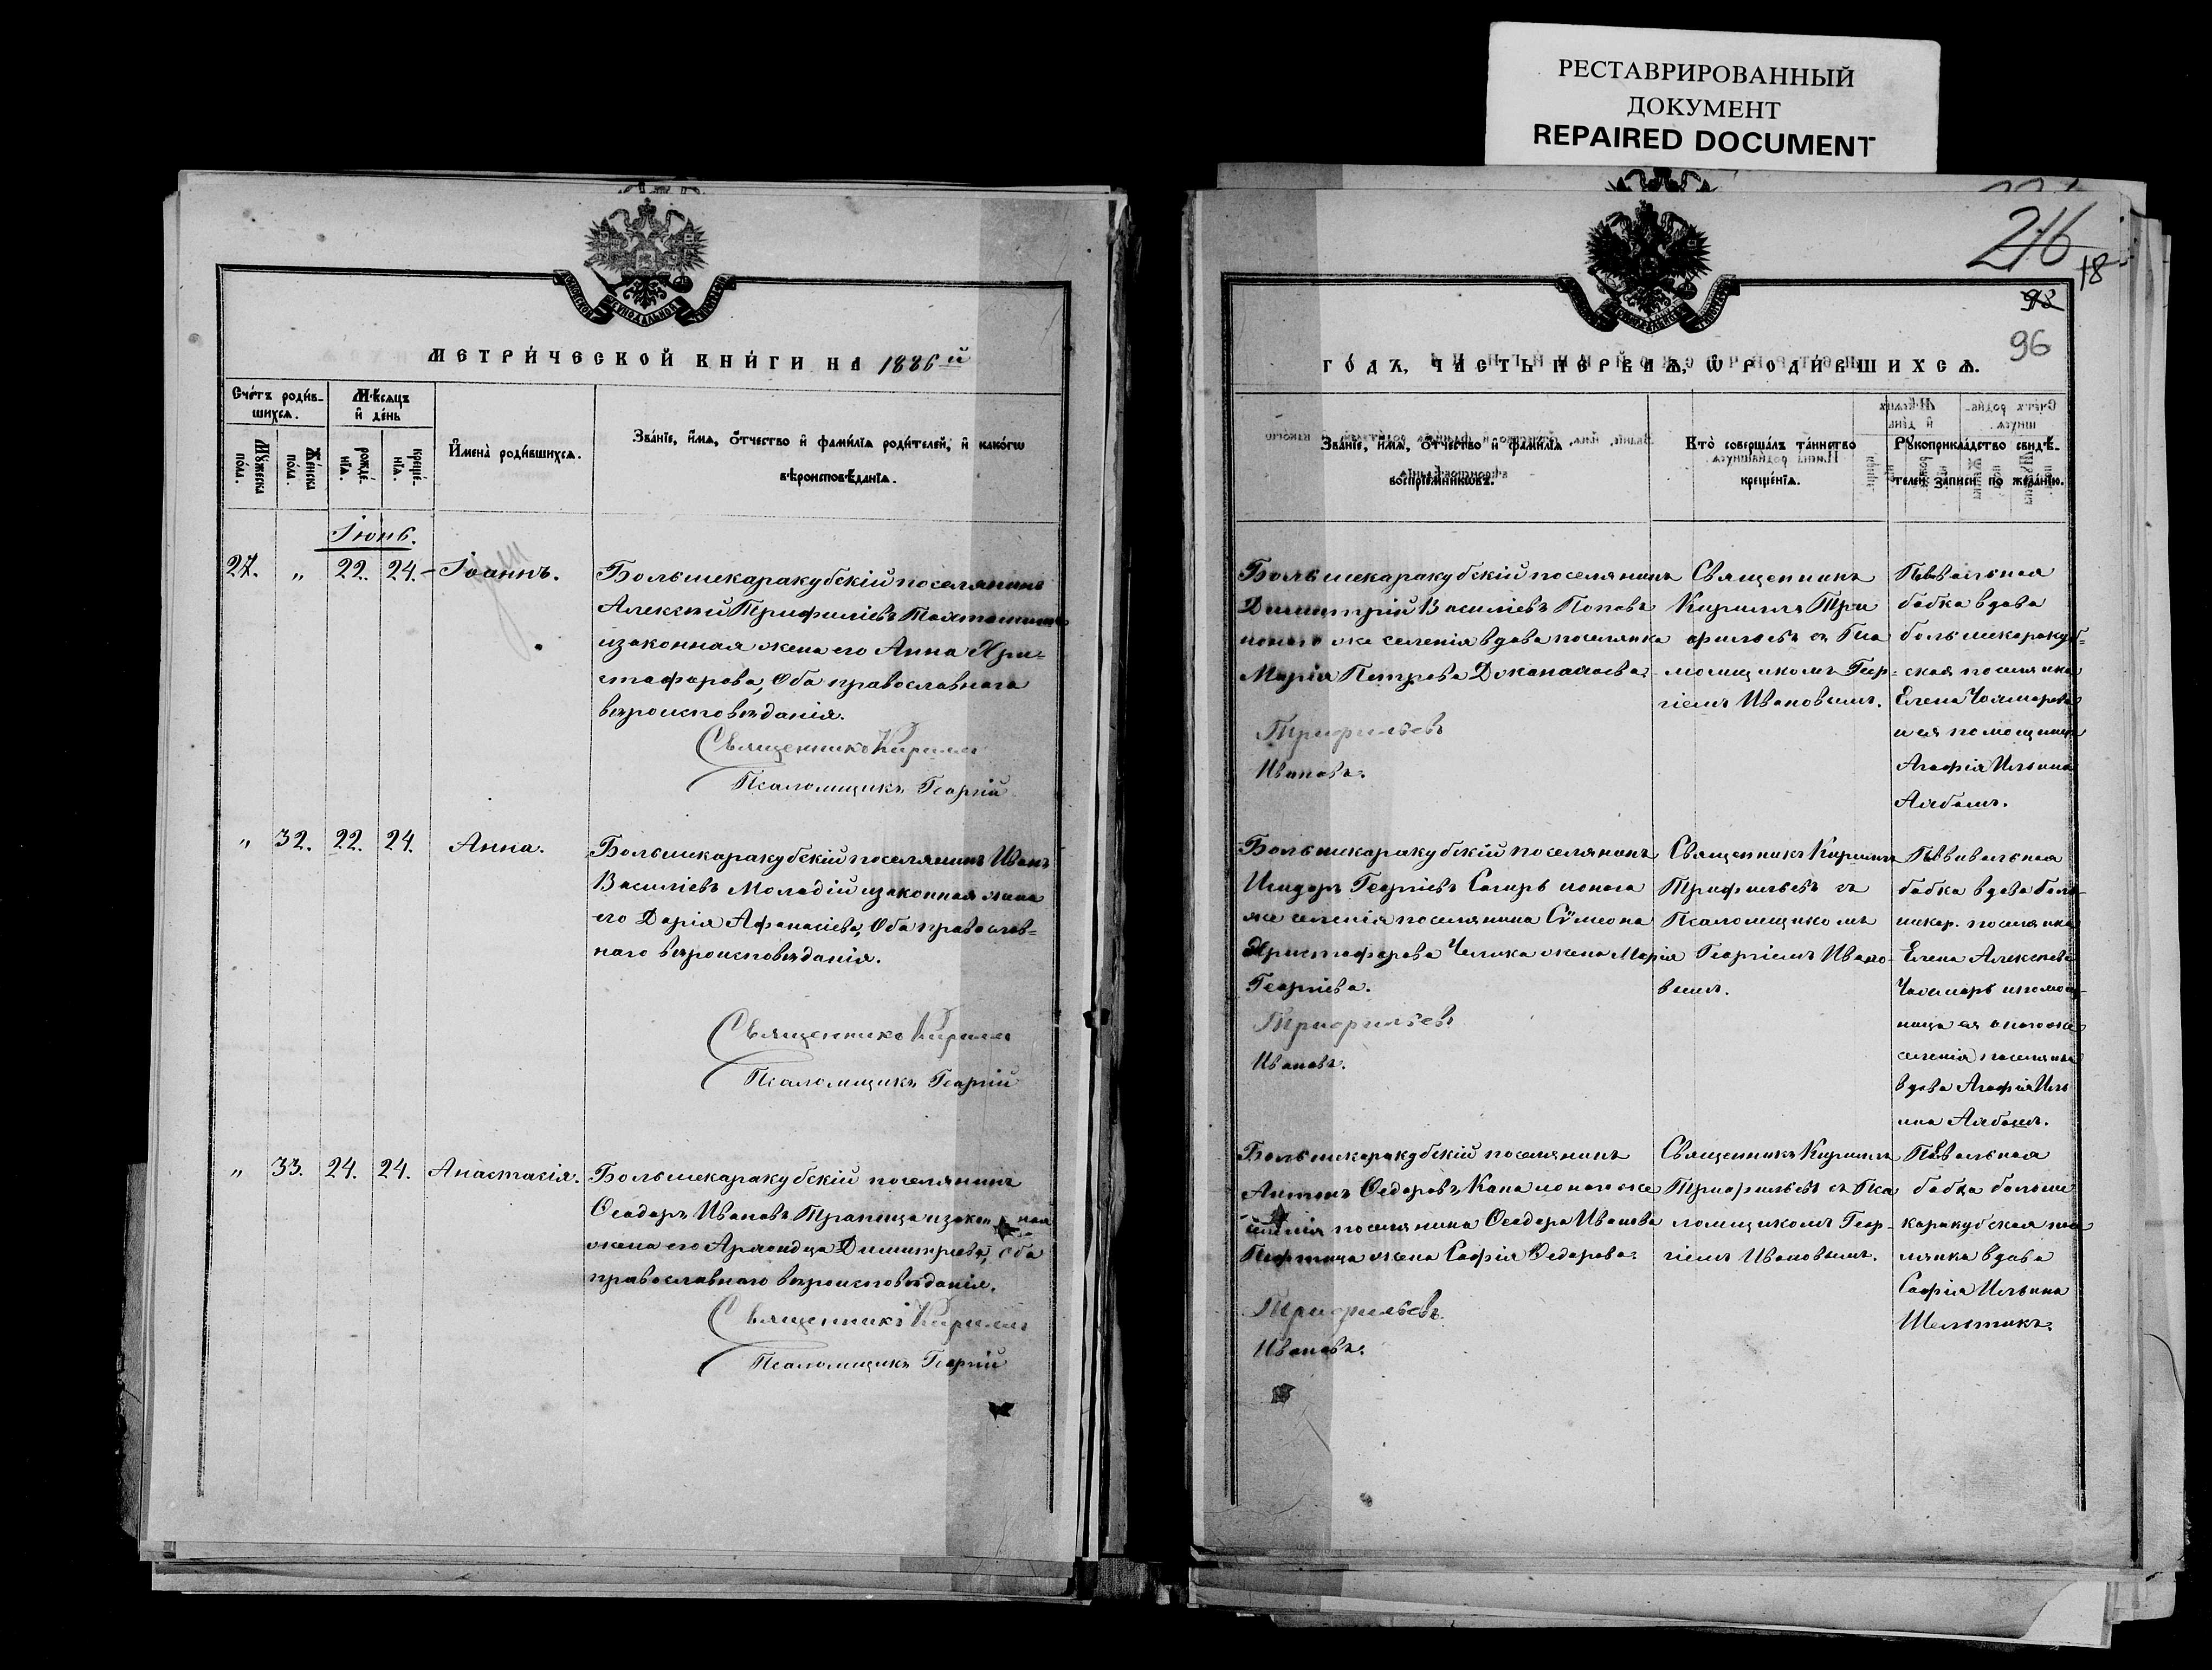 РЕСТАВРИРОВАННЫЙ
ДОКУМЕНТ
REPAIRED DOCUMENT
МЕТРИ́ЧЕСКОЙ КНИ́ГИ НА 1886й
Сче́тъ роди́в-
шихсѧ.
Мѣ́сѧцъ
и҆ де́нь
Мꙋ́жеска по́ла.
Же́нска по́ла.
рожде́-
нїѧ.
креще́-
нїѧ.
И҆мена̀ роди́вшихсѧ.
Зва́нїе, и҆́мѧ, ѻ҆́тчество и҆ фами́лїѧ роди́телей, и҆ како́гѡ
вѣроисповѣ́данїѧ.
Іюнь.
27. „ 22. 24. Іоаннъ.
Большекаракубскій поселянинъ
Алексѣй Трифиліевъ
и законная жена его Анна Хри-
стофорова, оба православнаго
вѣроисповѣданія.
Священникъ Кириллъ
Псаломщикъ Георгій
„ 32. 22. 24. Анна.
Большекаракубскій поселянинъ Иванъ
Василіевъ Молодій и законная жена
его Дарія Афанасіева, оба православ-
наго вѣроисповѣданія.
Священникъ Кириллъ
Псаломщикъ Георгій
„ 33. 24. 24. Анастасія.
Большекаракубскій поселянинъ
Ѳеодоръ Ивановъ Трапеца и законная
жена его Димитріева, оба
православнаго вѣроисповѣданія.
Священникъ Кириллъ
Псаломщикъ Георгій
216
18
98
96
ГО́ДЪ, ЧА́СТЬ ПЕ́РВАѦ, Ѡ҆ РОДИ́ВШИХСѦ.
Зва́нїе, и҆́мѧ, ѻ҆́тчество и҆ фами́лїѧ
воспрїе́мниковъ.
Кто̀ соверша́лъ та́инство
креще́нїѧ.
Рꙋкоприкла́дство свидѣ́-
телей за́писи по жела́нїю.
Большекаракубскій поселянинъ
Димитрій Василіевъ Поповъ
и того же селенія вдова поселянка
Марія Петрова
Трифильевъ
Ивановъ.
Священникъ
Кириллъ Три
фильевъ съ Пса
ломщикомъ Геор-
гіемъ Ивановымъ.
Повивальная
бабка вдова
большекаракуб-
ская поселянка
Елена
и ея помощница
Агафія Ильина
Алабашъ.
Большекаракубскій поселянинъ
Исидоръ Георгіевъ Сагиръ и того
же селенія поселянина Сѵмеона
Христофорова Челика жена Марія
Георгіева.
Трифильевъ
Ивановъ.
Священникъ Кириллъ
Трифильевъ съ
Псаломщикомъ
Георгіемъ Ивано-
вымъ.
Повивальная
бабка вдова боль-
шекар. поселянка
Елена Алексѣева
и помощ-
ница ея того же
селенія поселянка
вдова Агафія Иль
ина Алабашъ.
Большекаракубскій поселянинъ
Антонъ Ѳедоровъ Хана и того же
селенія поселянина Ѳеодора Иванова
жена Софія Ѳедорова.
Трифильевъ
Ивановъ.
Священникъ Кириллъ
Трифильевъ съ Пса
ломщикомъ Геор-
гіемъ Ивановымъ.
Повивальная
бабка больше
каракубская посе
лянка вдова
Софія Ильина
Шельтикъ.